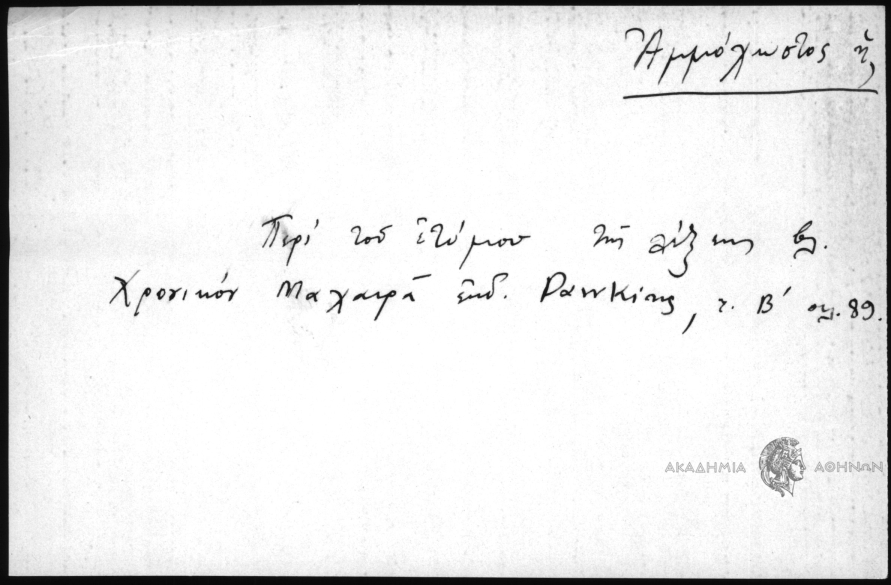 Ἀμμόχωστος ἡ,
Περί τοῦ ἐτύμου τῆς λέξεως βλ.
Χρονικόν Μαχαιρᾶ ἐκδ. Dawkins, τ. Β΄ σελ. 89.
ΑΚΑΔΗΜΙΑ ΑΘΗΝΩΝ